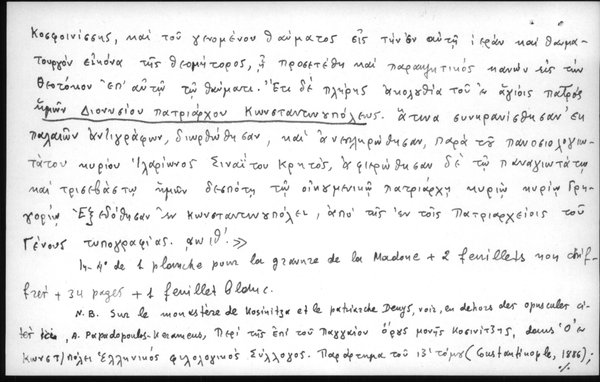 Κοσφοινίσσης, καὶ τοῦ γενομένου θαύματος εἰς τὴν ἐν αὐτῇ ἱερὰν καὶ θαυμα-
τουργὸν εἰκόνα τῆς θεομήτορος, ᾗ προσετέθη καὶ παρακλητικὸς κανὼν εἰς τὴν
Θεοτόκον ἐπ' αὐτῷ τῷ θαύματι. Ἔτι δὲ πλήρης ἀκολυθία τοῦ ἐν ἁγίοις πατρὸς
ἡμῶν Διονυσίου πατριάρχου Κωνσταντινυπόλεως. ἅτινα συνηρανίσθησαν ἐκ
παλαιῶν ἀντιγράφων, διωρθώθησαν, καὶ ἀνεπληρώθησαν, παρὰ τοῦ πανοσιολογιω-
τάτου κυρίου Ἱλαρίωνος Σιναΐτου Κρητός, ἀφιερώθησαν δὲ τῷ παναγιωτάτῳ
καὶ τρισεβάστῳ ἡμῶν δεσπότῃ τῷ οἰκυμενικῷ πατριάρχῃ κυρίῳ κυρίῳ Γρη-
γορίῳ Ἐξεδόθησαν ἐν Κωνσταντινυπόλει, ἀπὸ τῆς ἐν τοῖς Πατριαρχείοις τοῦ
Γένους τυπογραφίας. αωιθ'. »
In-4° de 1 planche pour la gravure de la Madone + 2 feuillets non chif-
frés + 34 pages + 1 feuillet blanc.
N.B. Sur le monastère de Kosinitza et le patriarche Denys, voir, en dehors des opuscules ci-
A. Papadopoulos-Kerameus, Περὶ τῆς ἐπὶ τοῦ Παγγαίου ὄρυς μονῆς Κοσινίτζης, dans Ὁ ἐν
Κωνστ/πόλει Ἑλληνικὸς φιλολογικὸς Σύλλογος. Παράρτημα τοῦ ιζ' τόμυ (Constantinople, 1886);